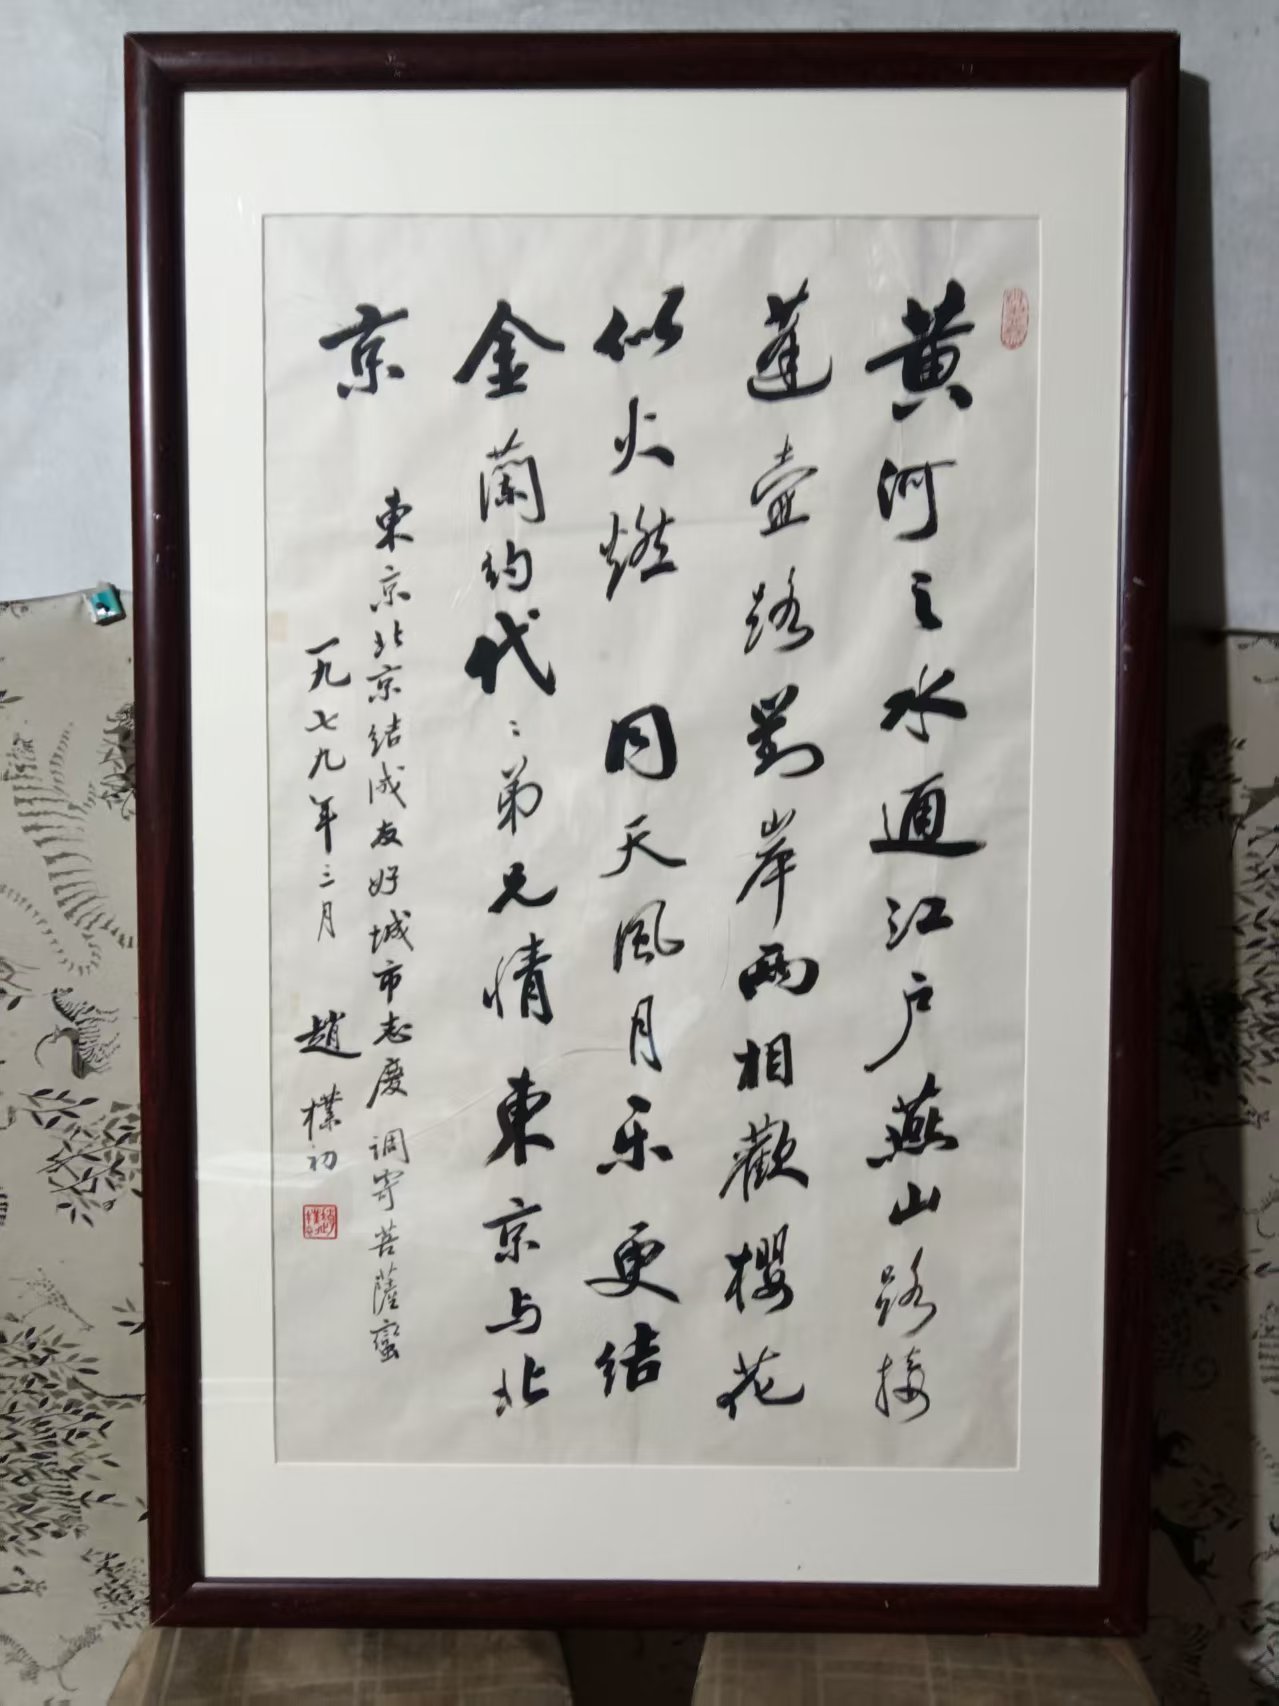 黄河之水通江户燕山路接
蓬壶路对岸两相歡櫻花
似火燃 同天風月乐更结
金蘭约代〻弟兄情東京与北
京
東京北京结成友好城市志慶 调寄菩薩蠻
一九七九年三月 趙樸初